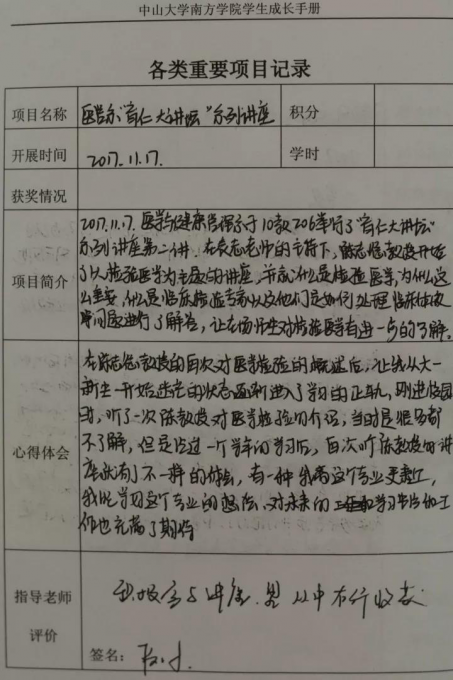 中山大学南方学院学生成长手册
各类重要项目记录
项目名称 医学系"育仁大讲坛"系列讲座 积分
开展时间 2017.11.17. 学时
获奖情况
项目简介
2017.11.17. 医学与健康管理系于10教206举行了"育仁大讲坛"
系列讲座第二讲. 在老师的主持下, 陈志教授开始
了以检验医学为主题的讲座, 并就什么是检验医学, 为什么这
么重要, 什么是临床检验以及他们是如何处理临床
等问题进行了解答, 让在场师生对检验医学有进一步的了解.
心得体会
在陈志教授的再次对医学检验的概述后, 让我从大一
新生一开始迷茫的状态逐渐进入了学习的正轨, 刚进校园
时, 听了一次陈教授对医学检验的介绍, 当时是很多都
不了解, 但是经过一个学年的学习后, 再次听陈教授的讲
座就有了不一样的体会, 有一种
学习这个专业的想法, 对未来的学习生活和工
作也充满了期待
指导老师
评价
积极参与讲座, 从中有所收获
签名: